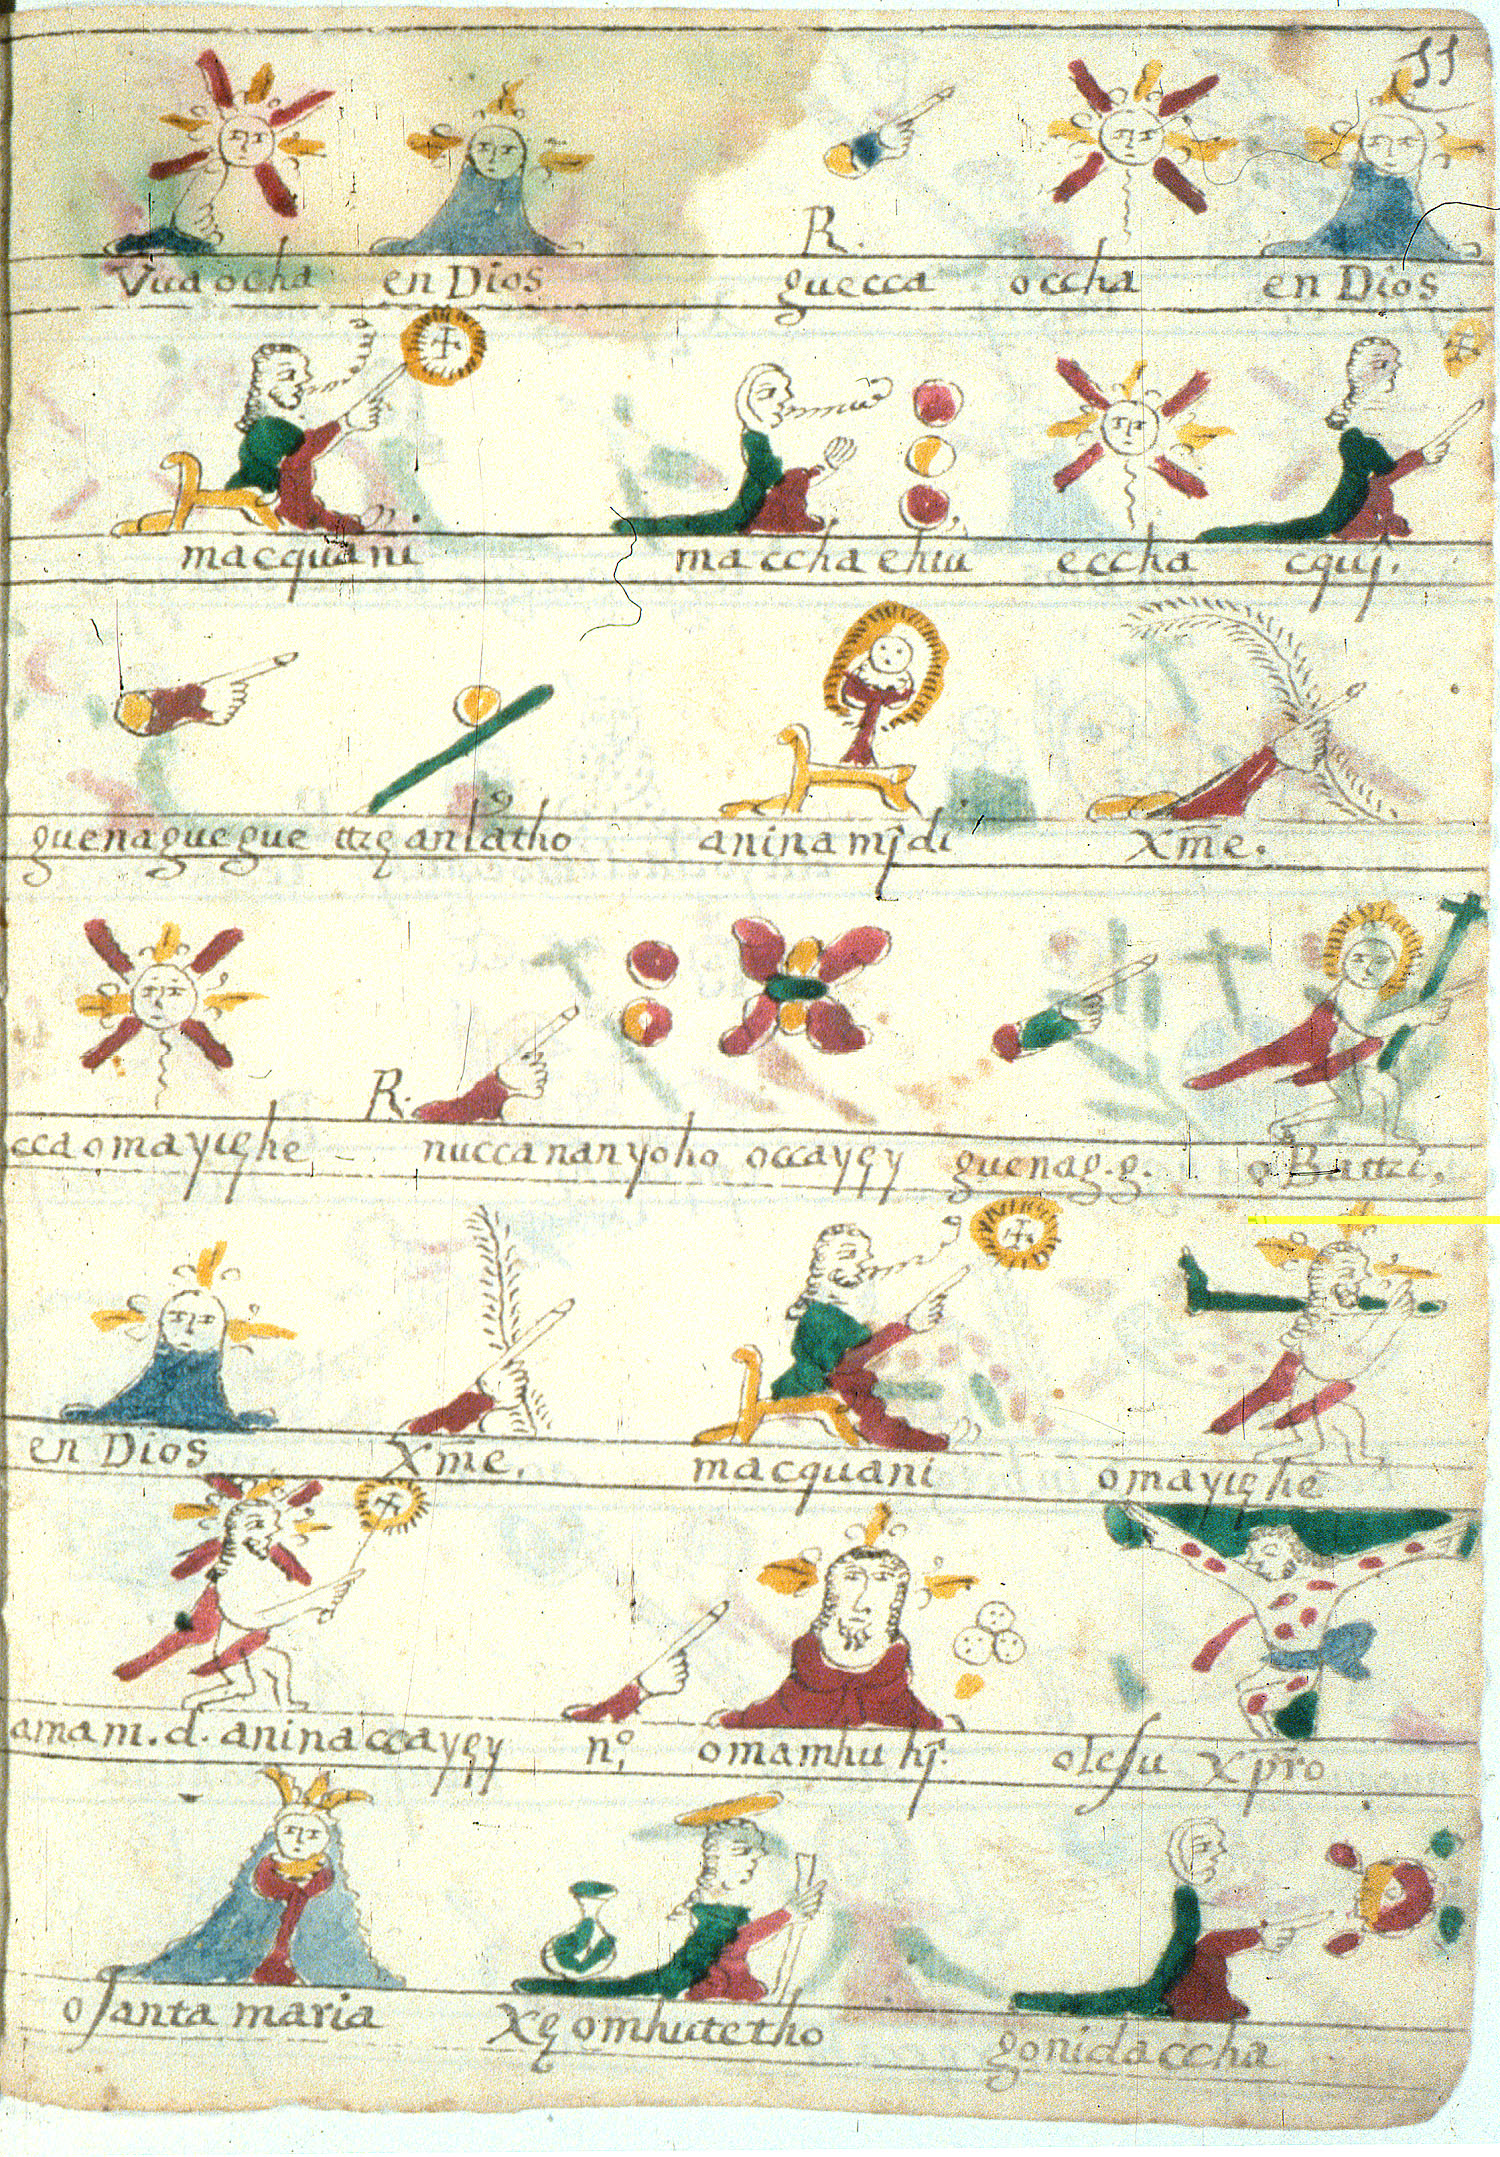 11
Vua ocha en Dios R. guecca occha en Dios
macquani maccha ehiu eccha cquŷ.
guenaguegue ttzę anłatho anina mȷ̂di X̄me.
cca omayıęhe R. nuccananyoho occayęy guenag.g. o Battzi.
en Dios X̄me. macquani omayıęhe
ama m.d. anina ccayęy n.º omamhu hȷ̂. o Iesu xp̄ro
o santa maria Xę omhutetho gonidaccha